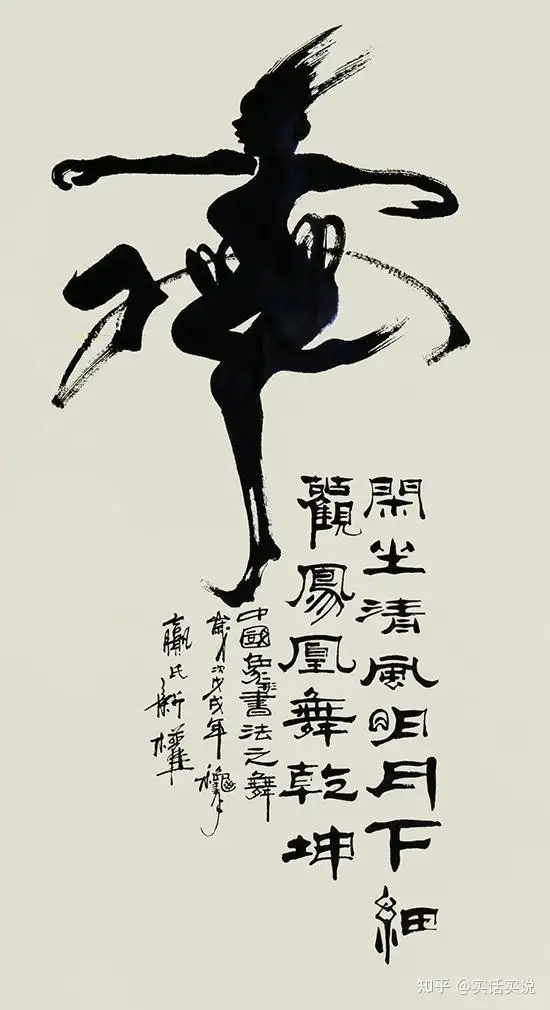 閑坐清風明月下細
觀鳳凰舞乾坤
中國象形書法之舞
歲次戊戌年
嬴氏新
知乎 @实话实说